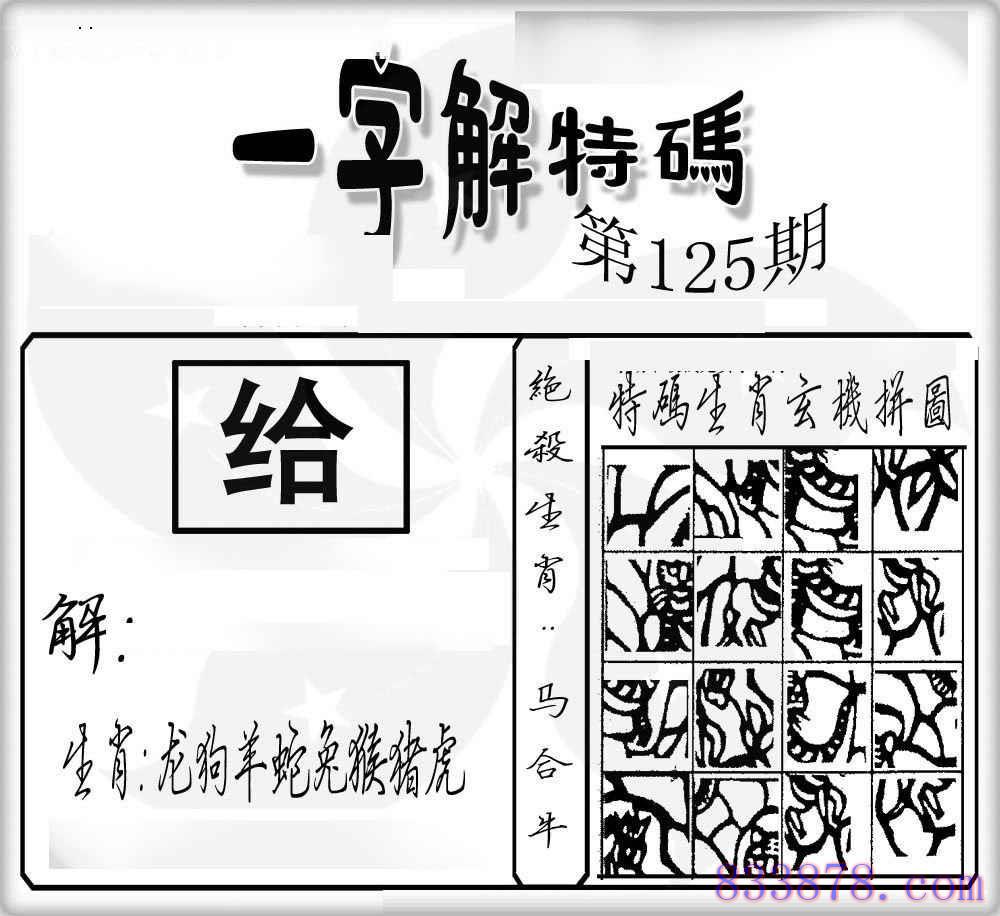 一字解特碼
第125期
给
解：
生肖：龙狗羊蛇兔猴猪虎
絶殺生肖：马合牛
特碼生肖玄機拼圖
833878.com